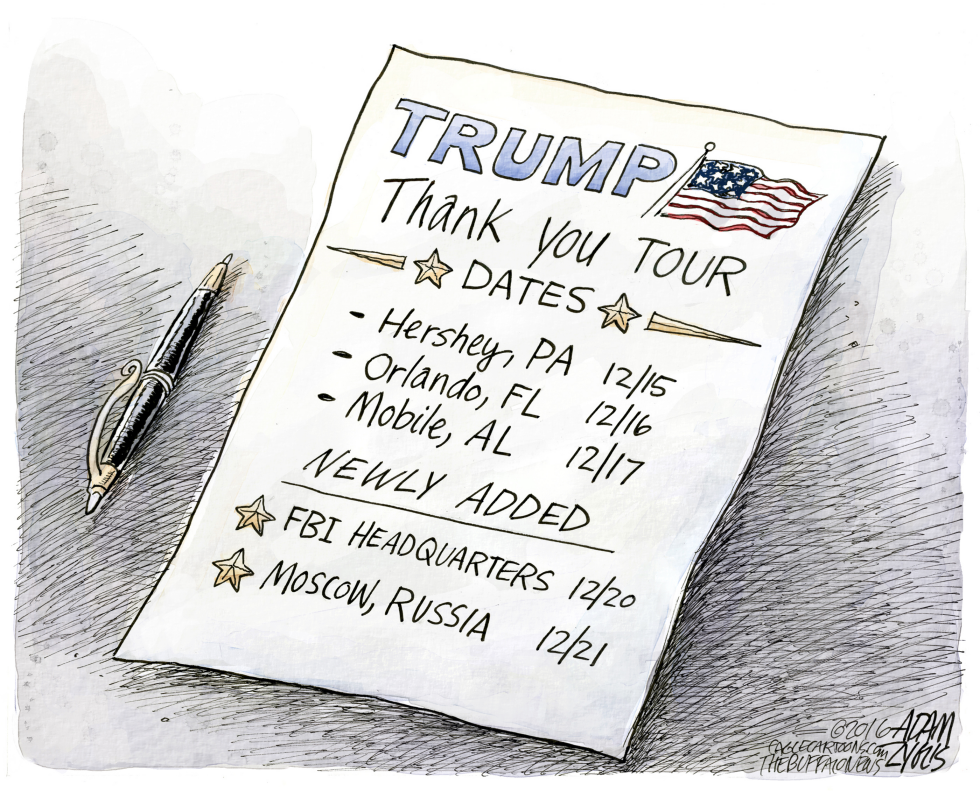 TRUMP
Thank you TOUR
DATES
- Hershey, PA 12/15
- Orlando, FL 12/16
- Mobile, AL 12/17
NEWLY ADDED
FBI HEADQUARTERS 12/20
MOSCOW, RUSSIA 12/21
©2016 ADAM
CAGLECARTOONS.COM ZYGLIS
THE BUFFALO NEWS